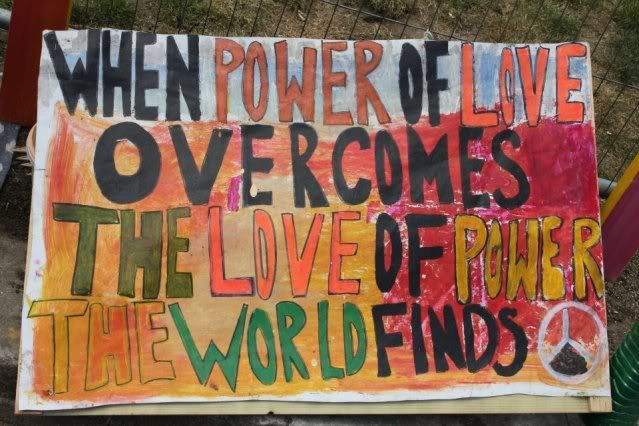 WHEN POWER OF LOVE
OVERCOMES
THE LOVE OF POWER
THE WORLD FINDS